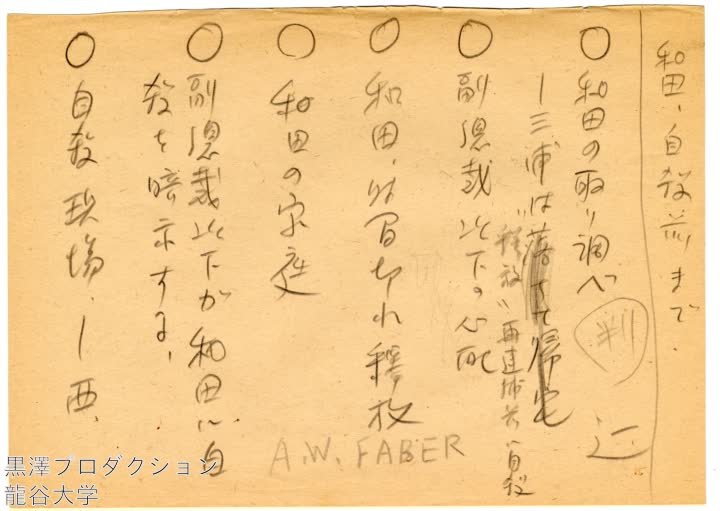 和田、自殺前まで.
○ 和田の取り調べ 判
|三浦は落ちて帰宅
"釈放"再逮捕前に自殺
○ 副総裁以下の心配
○ 和田、時間切れ釋放
○ 和田の家庭
○ 副總裁以下が和田に自
殺を暗示する、
○ 自殺現場、|西、
A.W. FABER
黒澤プロダクション
龍谷大学